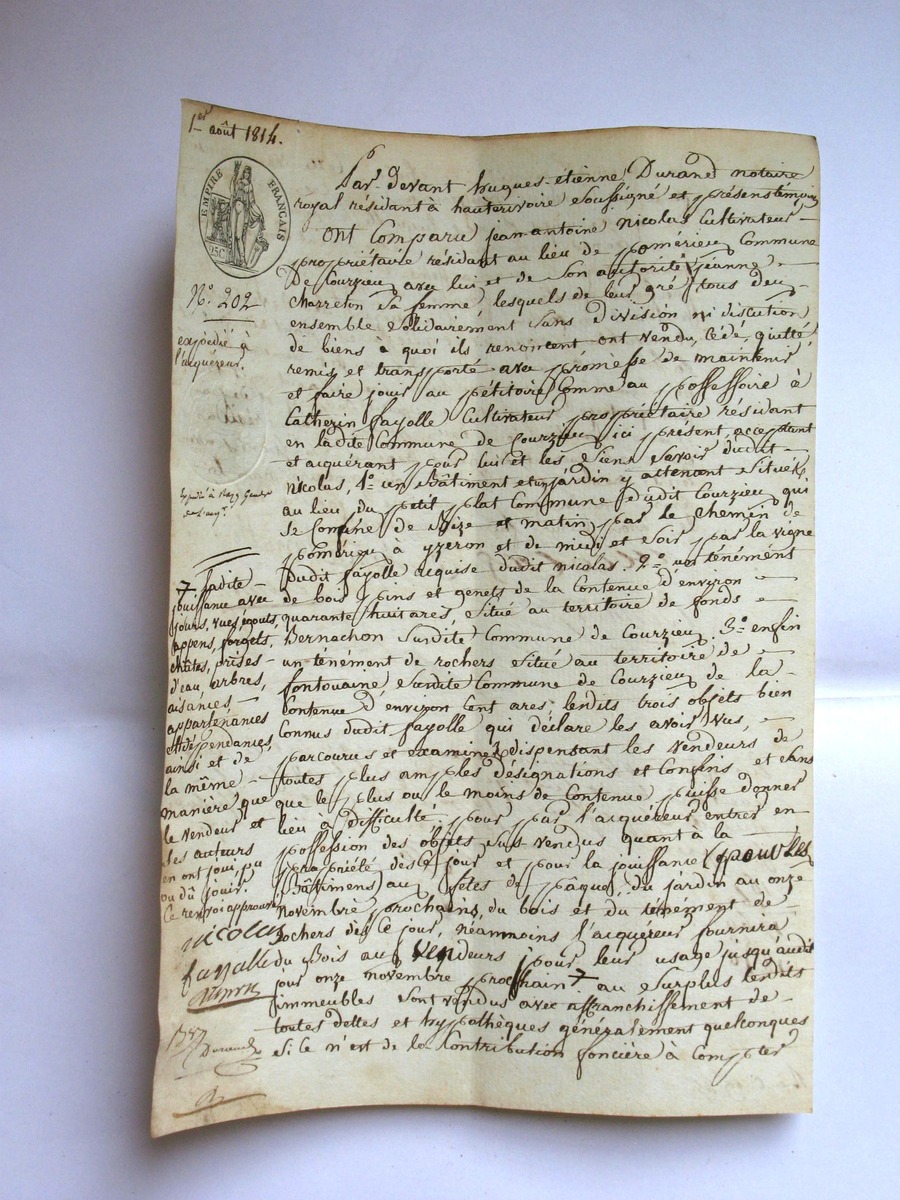 1er août 1814.
EMPIRE FRANÇAIS
25C
N.° 202
expédié à
l'acquéreur.
Par-devant hugues-étienne Durand notaire
royal résidant à hauterivoire soussigné et présens témoins
ont Comparu jean-antoine nicolas Cultivateur
propriétaire résidant au lieu de pomérieu Commune
De Courzieu avec lui et de son autorité jeanne
Charreton sa femme, lesquels de leur gré, tous deux
ensemble solidairement sans division ni discution
de biens à quoi ils renoncent ont vendu, cédé, quitté,
remis et transporté avec promesse de maintenir
et faire jouir au pétitoire Comme au possessoire à
Catherin fayolle Cultivateur propriétaire résidant
en ladite Commune de Courzieu ici présent, acceptant
et acquérant pour lui et les siens savoir dudit
nicolas, 1.° un Bâtiment et un jardin y attenant situés
au lieu du petit plat Commune dudit Courzieu qui
se Confine de bize et matin par le chemin de
pomérieu à yzeron et de midi et soir par la vigne
dudit fayolle acquise dudit nicolas. 2.° un ténément
de bois pins et genets de la Contenue d'environ
quarante huit ares, situé au territoire de fonds
Bernachon susdite Commune de Courzieu. 3.° enfin
un ténément de rochers situé au territoire de
fontouaine susdite Commune de Courzieu de la
Contenue d'environ Cent ares; lesdits trois objets bien
Connus dudit fayolle qui déclare les avoir vus,
parcourus et examinés dispensant les vendeurs de
toutes plus amples désignations et Confins et sans
que le plus ou le moins de Contenue puisse donner
lieu à difficulté: pour par l'acquéreur entrer en
possession des objets sus vendus quant à la
propriété dès Ce jour et pour la jouissance (pour les
Bâtimens) aux fêtes de pâques, du jardin au onze
novembre prochains, du bois et du ténément de
rochers dès Ce jour, néanmoins l'acquéreur fournira
du Bois aux Vendeurs pour leur usage jusqu'audit
jour onze novembre prochain 7 au surplus lesdits
immeubles sont vendus avec affranchissement de
toutes dettes et hypothèques généralement quelconques
si Ce n'est de la Contribution foncière à Compter
7 ladite
jouissance avec
jours, vues, égouts,
appens, forgets,
entrées, prises
d'eau, arbres,
aisances,
appartenances
et dépendances
ainsi et de
la même
manière que
le vendeur et
ses auteurs
en ont joui, pu
ou dû jouir.
Ce renvoi approuvé
nicolas
fayolle
Durand